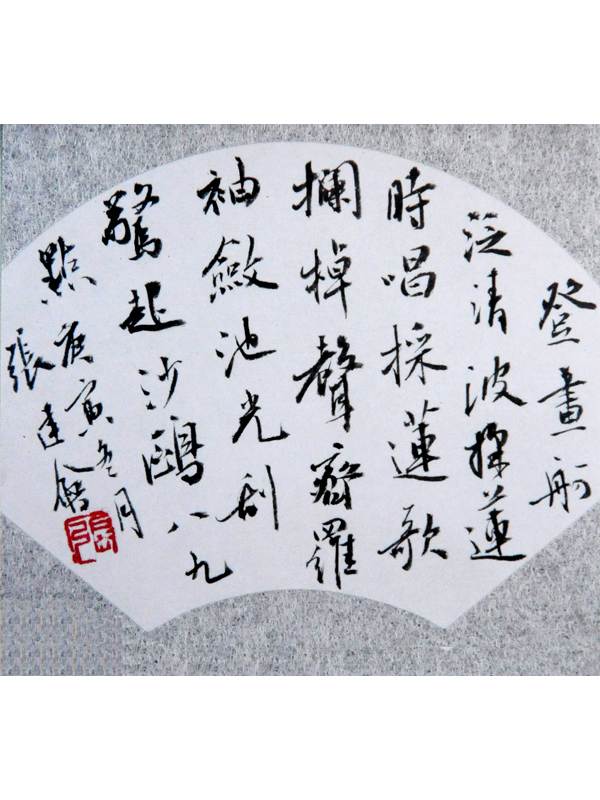 登畫舸
泛清波採蓮
時唱採蓮歌
欄棹聲齊羅
袖斂池光颭
驚起沙鷗八九
點庚寅冬月
張建會